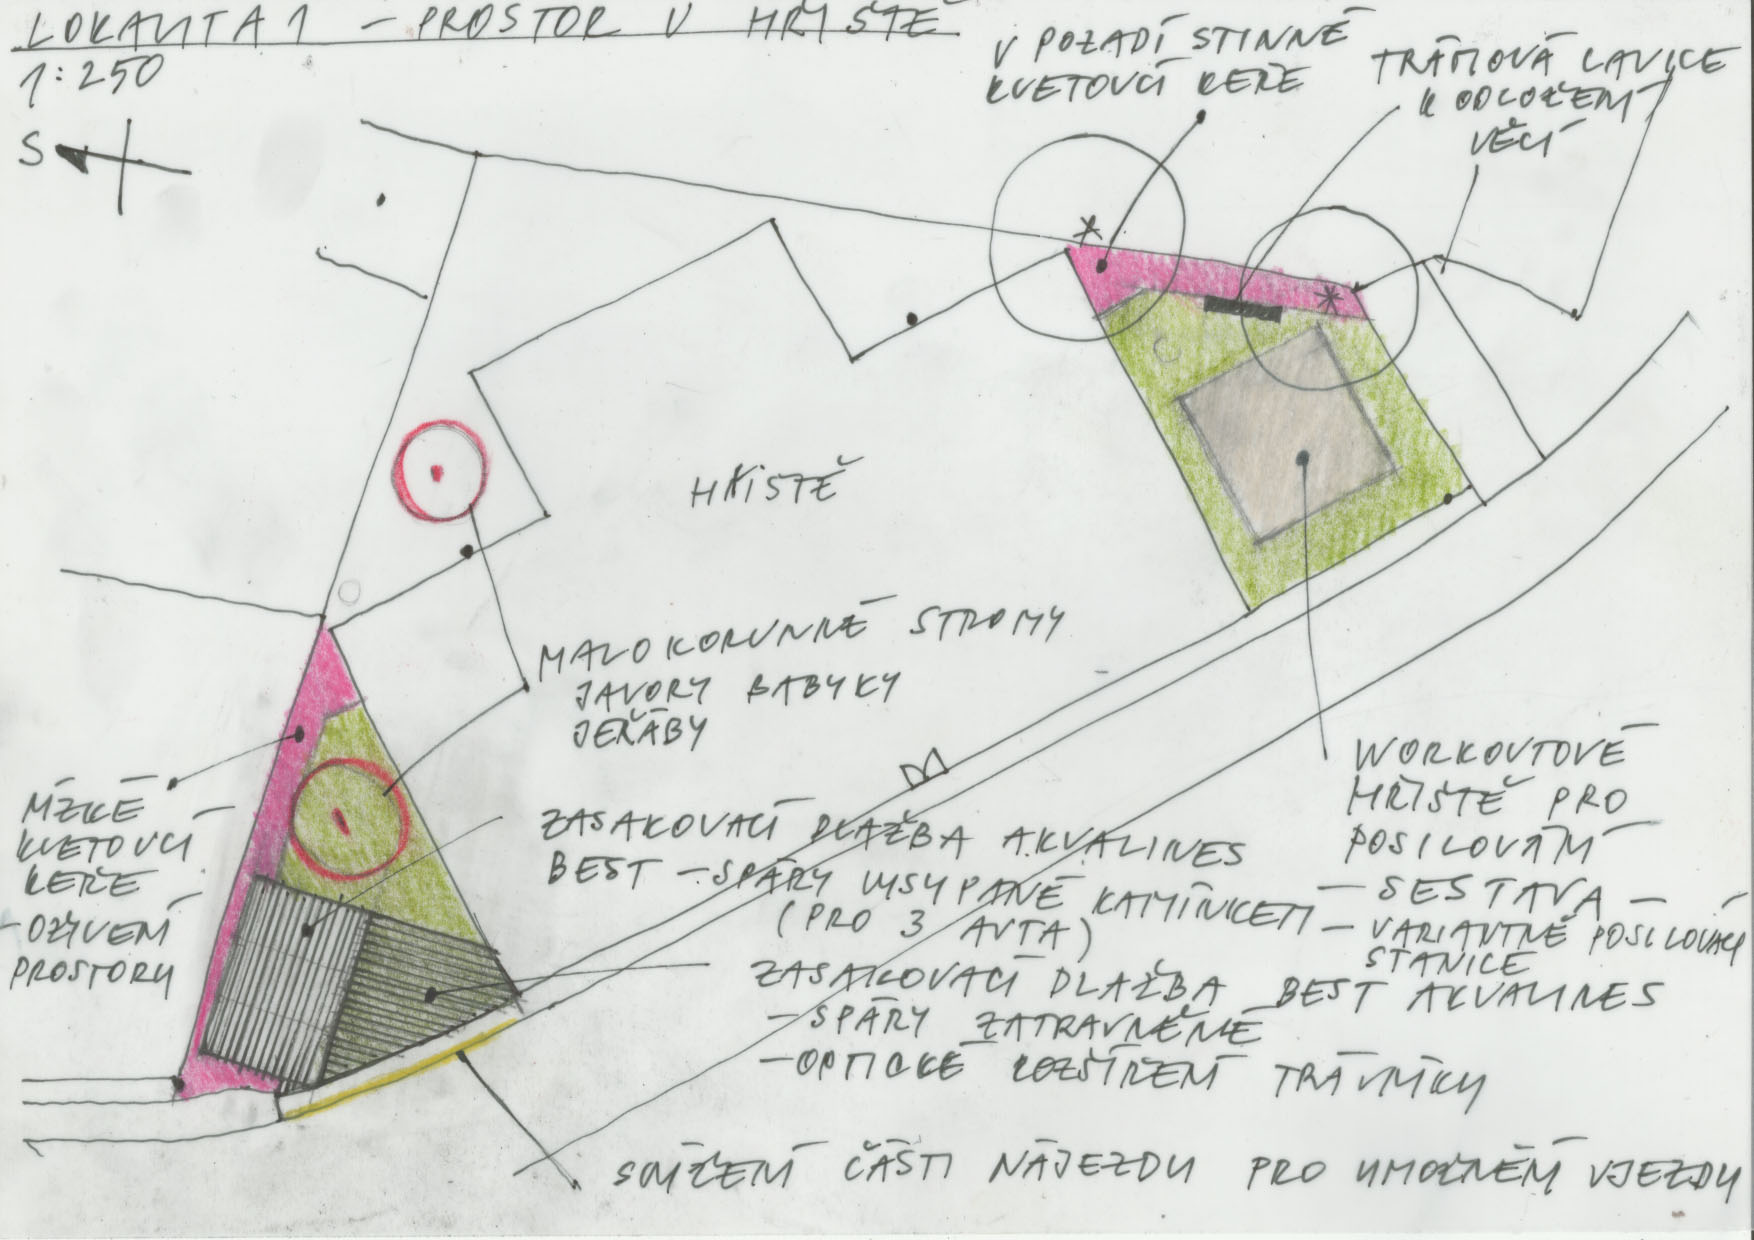 LOKALITA 1 – PROSTOR U HŘIŠTĚ
1:250
S
V POZADÍ STINNÉ
KVETOUCÍ KEŘE
TRÁMOVÁ LAVICE
K ODLOŽENÍ
VĚCÍ
HŘIŠTĚ
MALOKORUNNÉ STROMY
JAVORY BABYKY
JEŘÁBY
NÍZKÉ
KVETOUCÍ
KEŘE
- OŽIVENÍ
PROSTORU
ZASAKOVACÍ DLAŽBA AKVALINES
BEST – SPÁRY VYSYPANÉ KAMÍNKEM
(PRO 3 AUTA)
WORKOUTOVÉ
HŘIŠTĚ PRO
POSILOVÁNÍ
- SESTAVA -
- VARIANTNĚ POSILOVACÍ
STANICE
ZASAKOVACÍ DLAŽBA BEST AKVALINES
- SPÁRY ZATRAVNĚNÉ
- OPTICKÉ ROZŠÍŘENÍ TRÁVNÍKU
SNÍŽENÍ ČÁSTI NÁJEZDU PRO UMOŽNĚNÍ VJEZDU